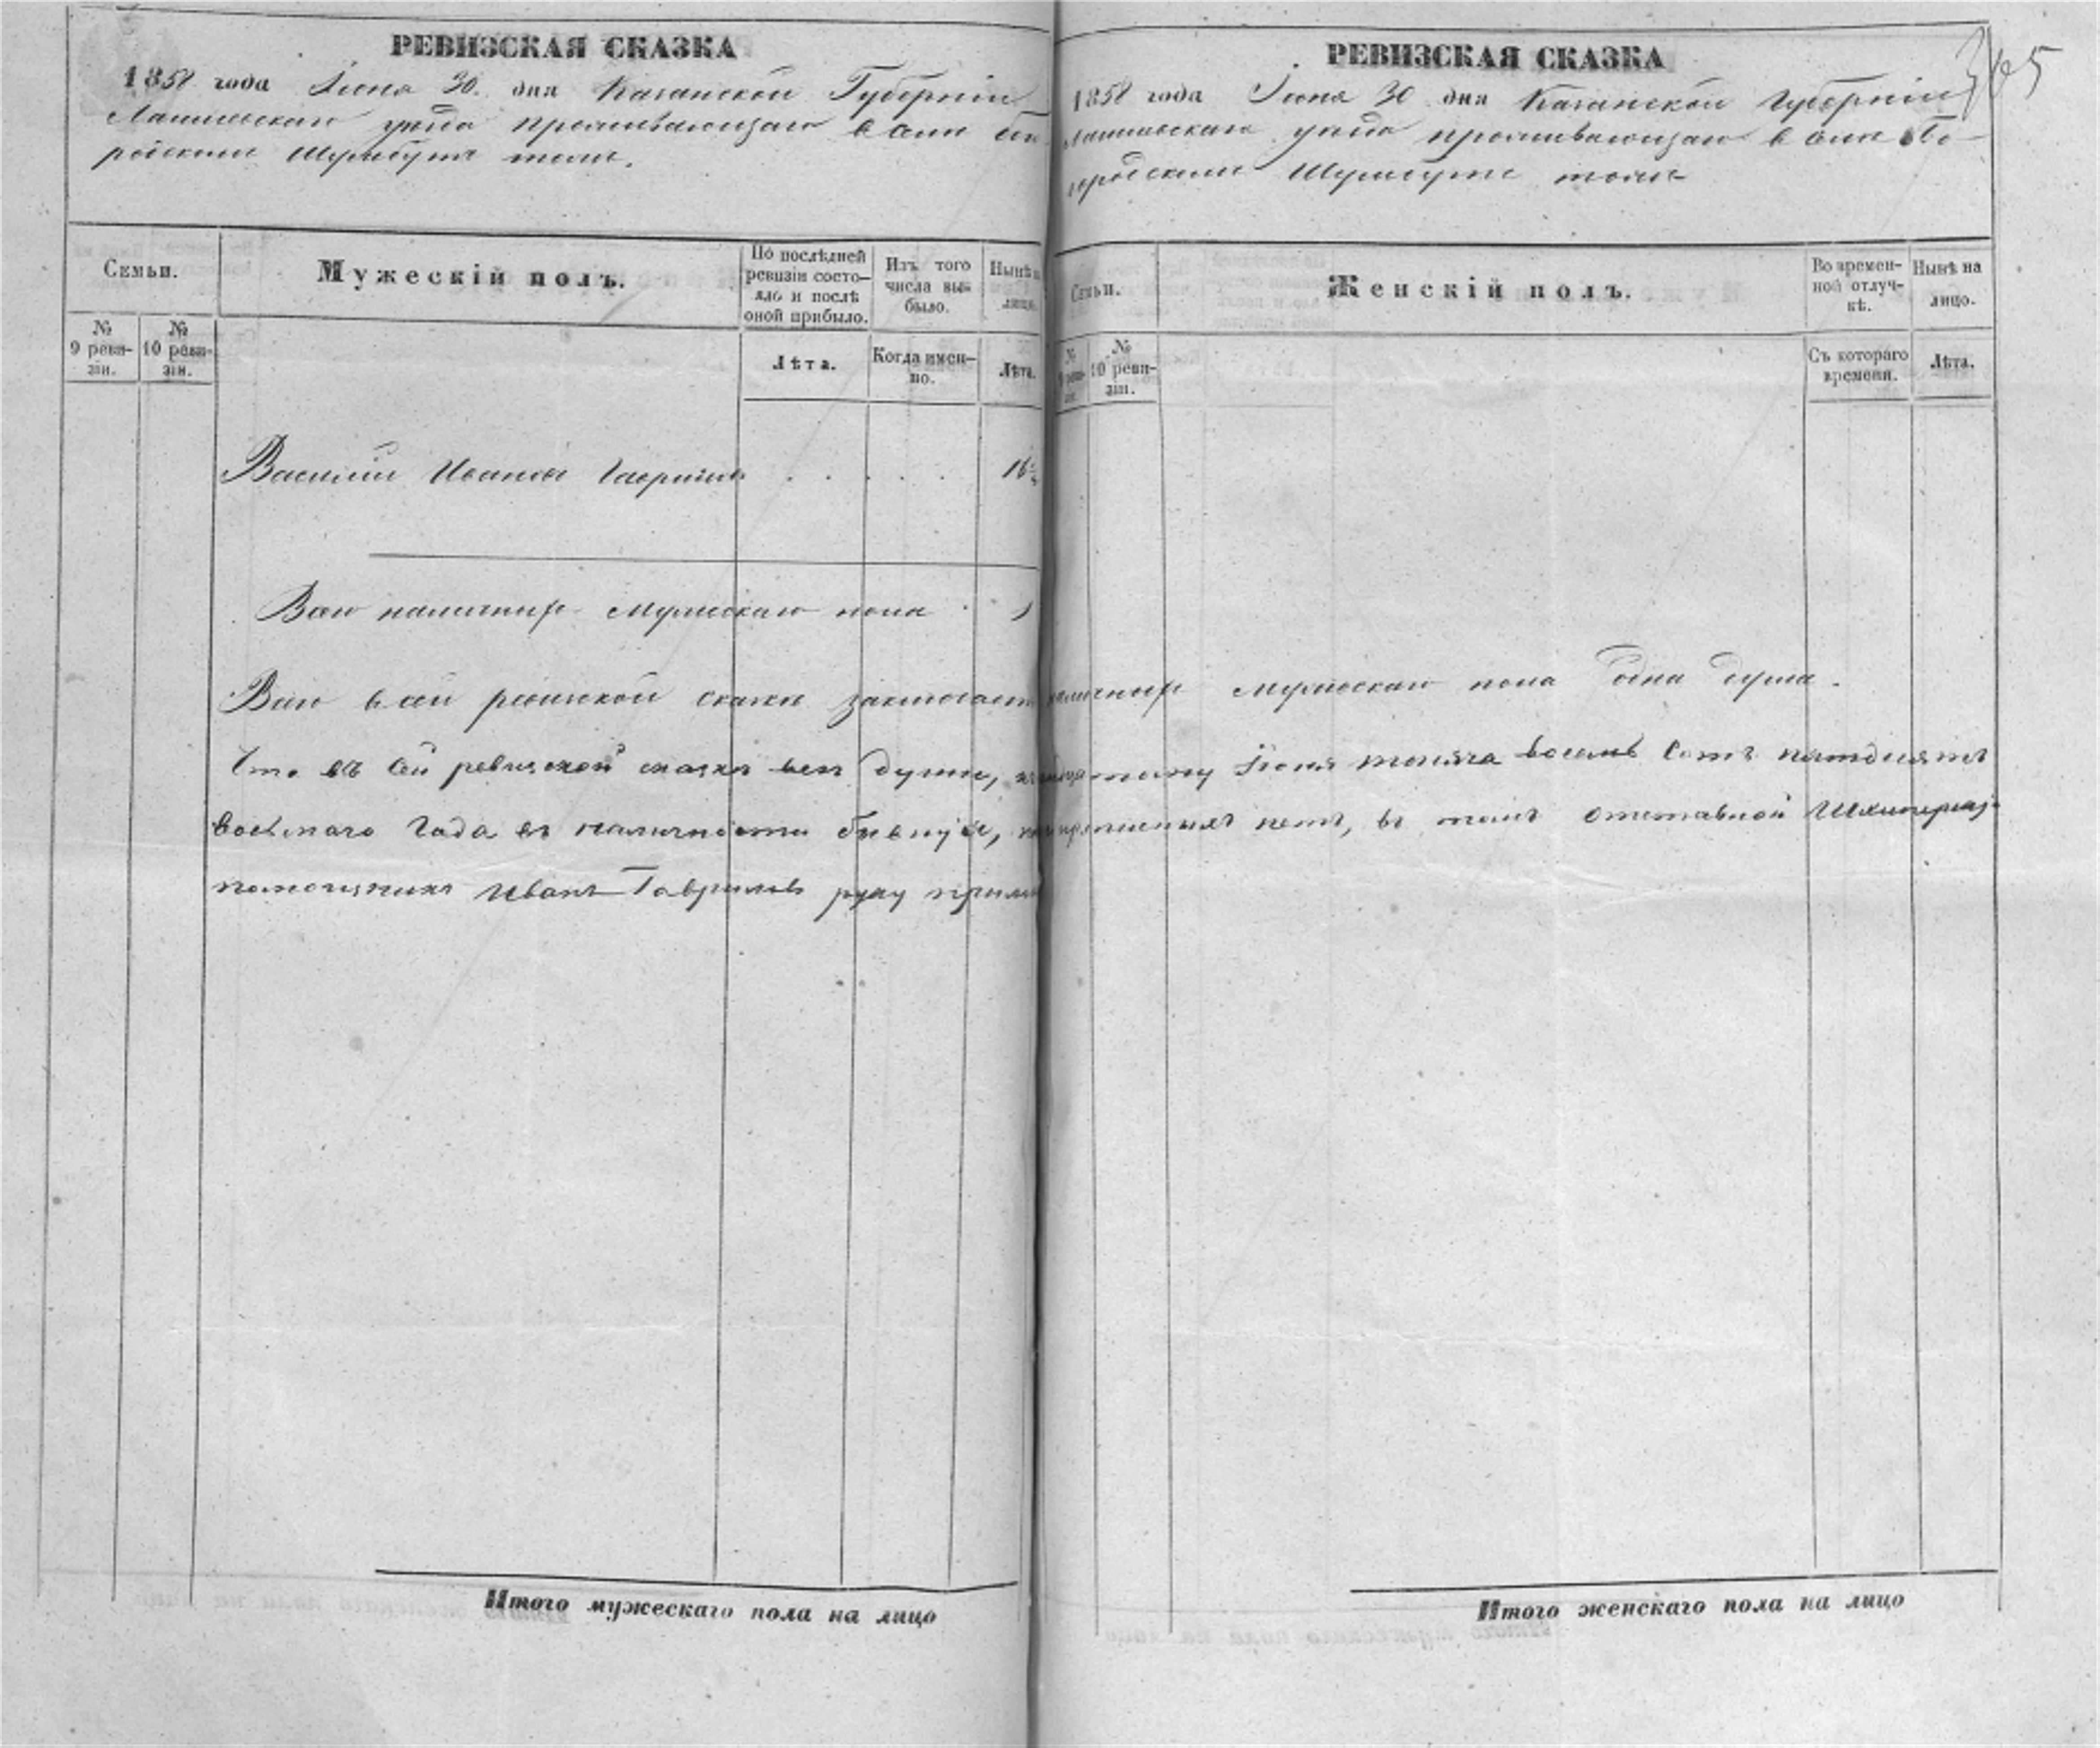 РЕВИЗСКАЯ СКАЗКА
1858 года Іюня 30. дня Казанской Губерніи
Лаишевскаго уѣзда проживающаго в селѣ
Шумбутѣ тожъ.
Семьи.
Мужескій полъ.
По послѣдней ревизіи состо-
яло и послѣ оной прибыло.
Изъ того числа вы-
было.
Нынѣ на лицо.
№ 9 реви-
зіи.
№ 10 реви-
зіи.
Лѣта.
Когда имен-
но.
Лѣта.
Василій Ивановъ Гавриловъ . . . . . 16½
Всего наличныхъ мужескаго пола 1
Всего в сей ревизской сказкѣ заключается наличныхъ мужескаго пола одна душа.
Что въ сей ревизской сказкѣ всѣ души, къ тридцатому Іюня тысяча восемь сотъ пятдесятъ
восьмаго года въ наличности бывшіе, нѣтъ, въ томъ отставной
помощникъ Иванъ Гавриловъ руку прилож
РЕВИЗСКАЯ СКАЗКА
365
1858 года Іюня 30 дня Казанской Губерніи
Лаишевскаго уѣзда проживающаго в селѣ Бо-
городскомъ Шумбутѣ тожъ
Семьи.
Женскій полъ.
Во времен-
ной отлуч-
кѣ.
Нынѣ на лицо.
№ 9 реви-
зіи.
№ 10 реви-
зіи.
Съ котораго времени.
Лѣта.
Итого мужескаго пола на лицо
Итого женскаго пола на лицо